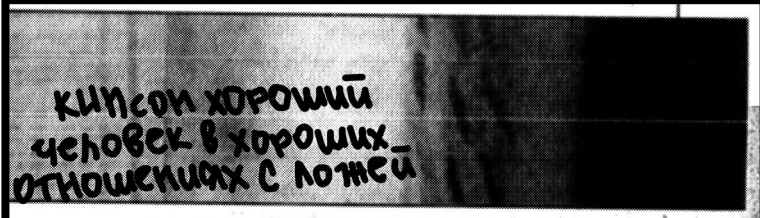 кипсон хороший
человек в хороших
отношениях с ложей